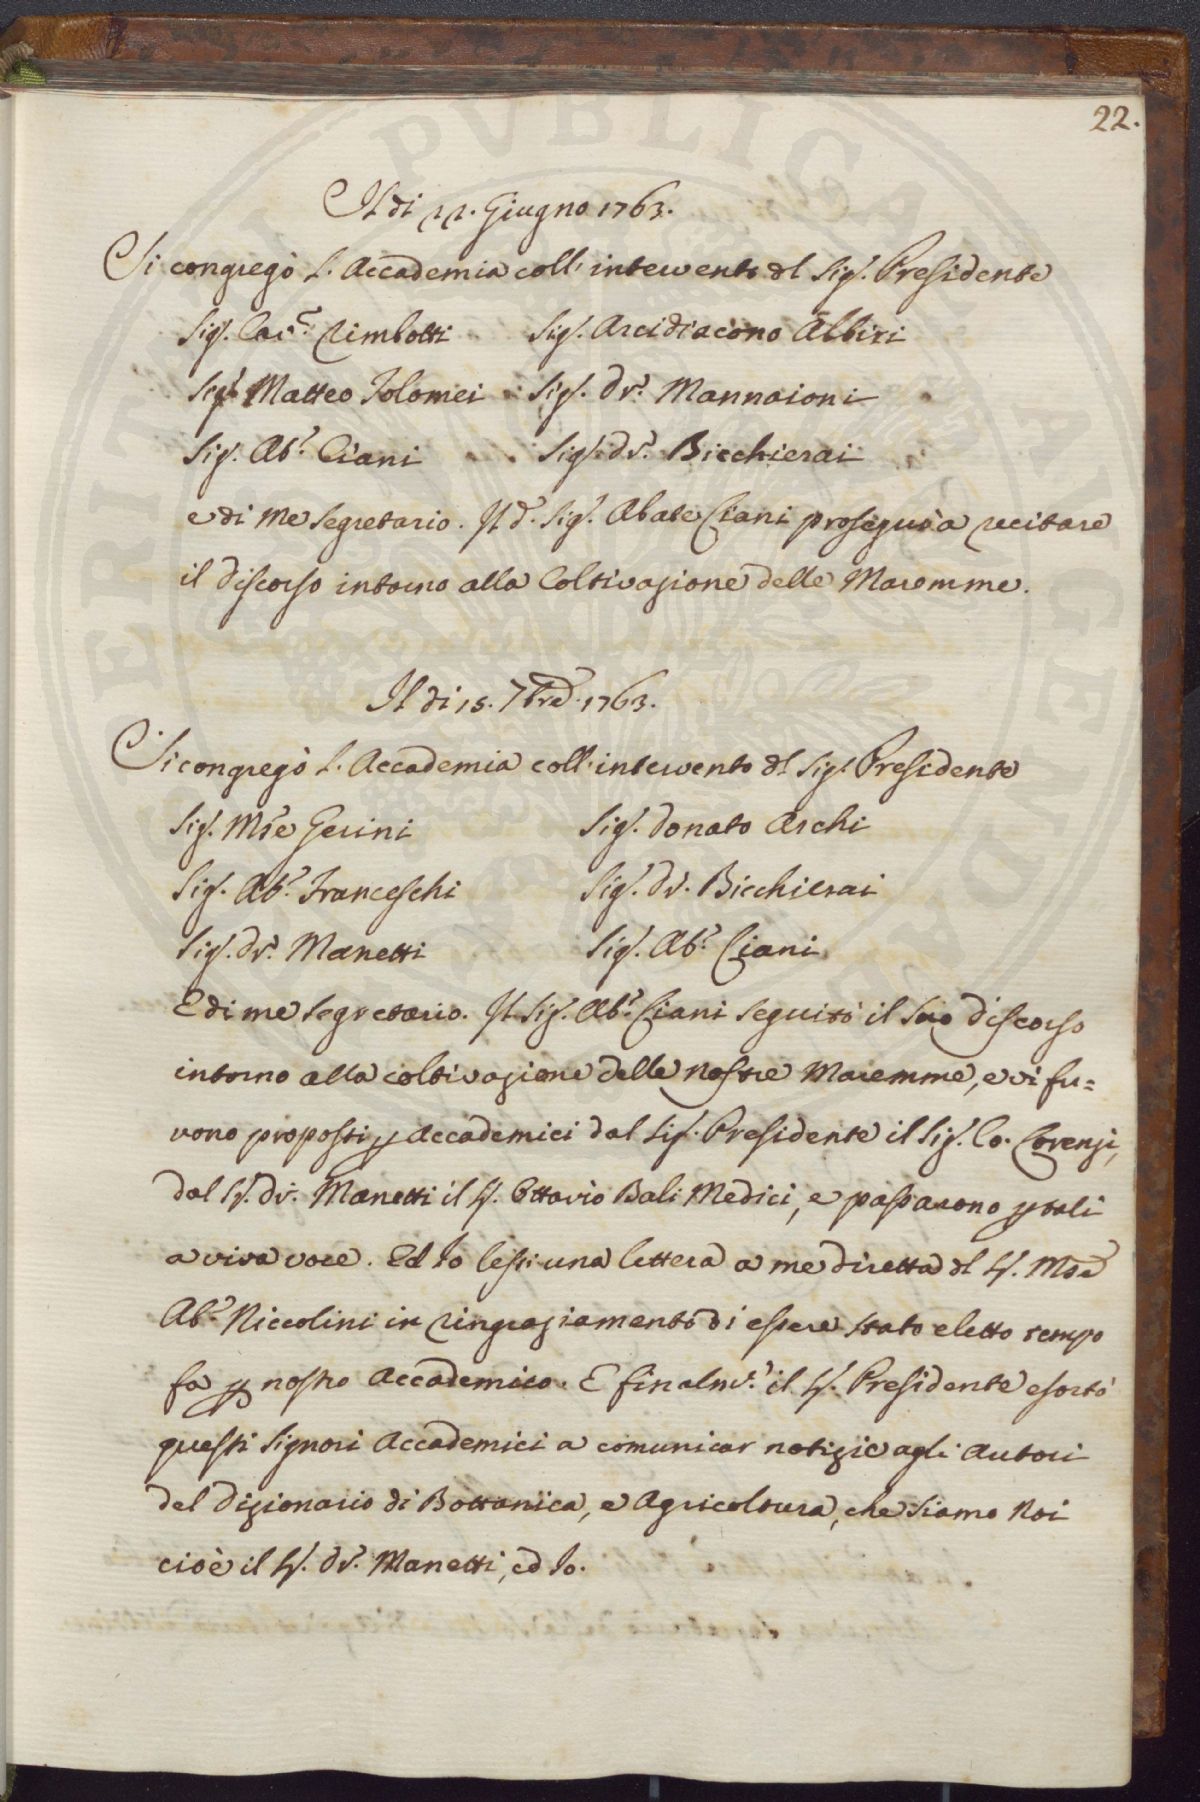 22.
Il di 22. Giugno 1763.
Si congregò l'Accademia coll'intervento dl Sig.r Presidente
Sig.r Cav.re Rimbotti Sig.r Arcidiacono Albizi
Sig.r Matteo Tolomei Sig.r Dr. Mannaioni
Sig.r Ab.e Ciani Sig.r Dr. Bicchierai
e di me Segretario. Il d.o Sig.r Abate Ciani proseguì a recitare
il discorso intorno alla Coltivazione delle Maremme.
Il di 15. 7bre. 1763.
Si congregò l'Accademia coll'intervento dl Sig.r Presidente
Sig.r Mse Gerini Sig.r Donato Archi
Sig.r Ab.e Franceschi Sig.r Dr. Bicchierai
Sig.r Dr. Manetti Sig.r Ab.e Ciani
E di me Segretario. Il Sig.r Ab.e Ciani seguitò il suo discorso
intorno alla coltivazione delle nostre Maremme, e vi fu=
rono proposti p Accademici dal Sig.r Presidente il Sig.r Co. Lorenzi,
dal S.r Dr. Manetti il S.r Ottavio Bali Medici, e passarono p tali
a viva voce. Ed Io lessi una lettera a me diretta dl S.r Mse
Ab.e Niccolini in ringraziamento di essere stato eletto tempo
fa p nostro Accademico. E finalm.e il S.r Presidente esortò
questi Signori Accademici a comunicar notizie agli Autori
del Dizionario di Bottanica, e Agricoltura, che siamo Noi
cioè il S.r Dr. Manetti, ed Io.